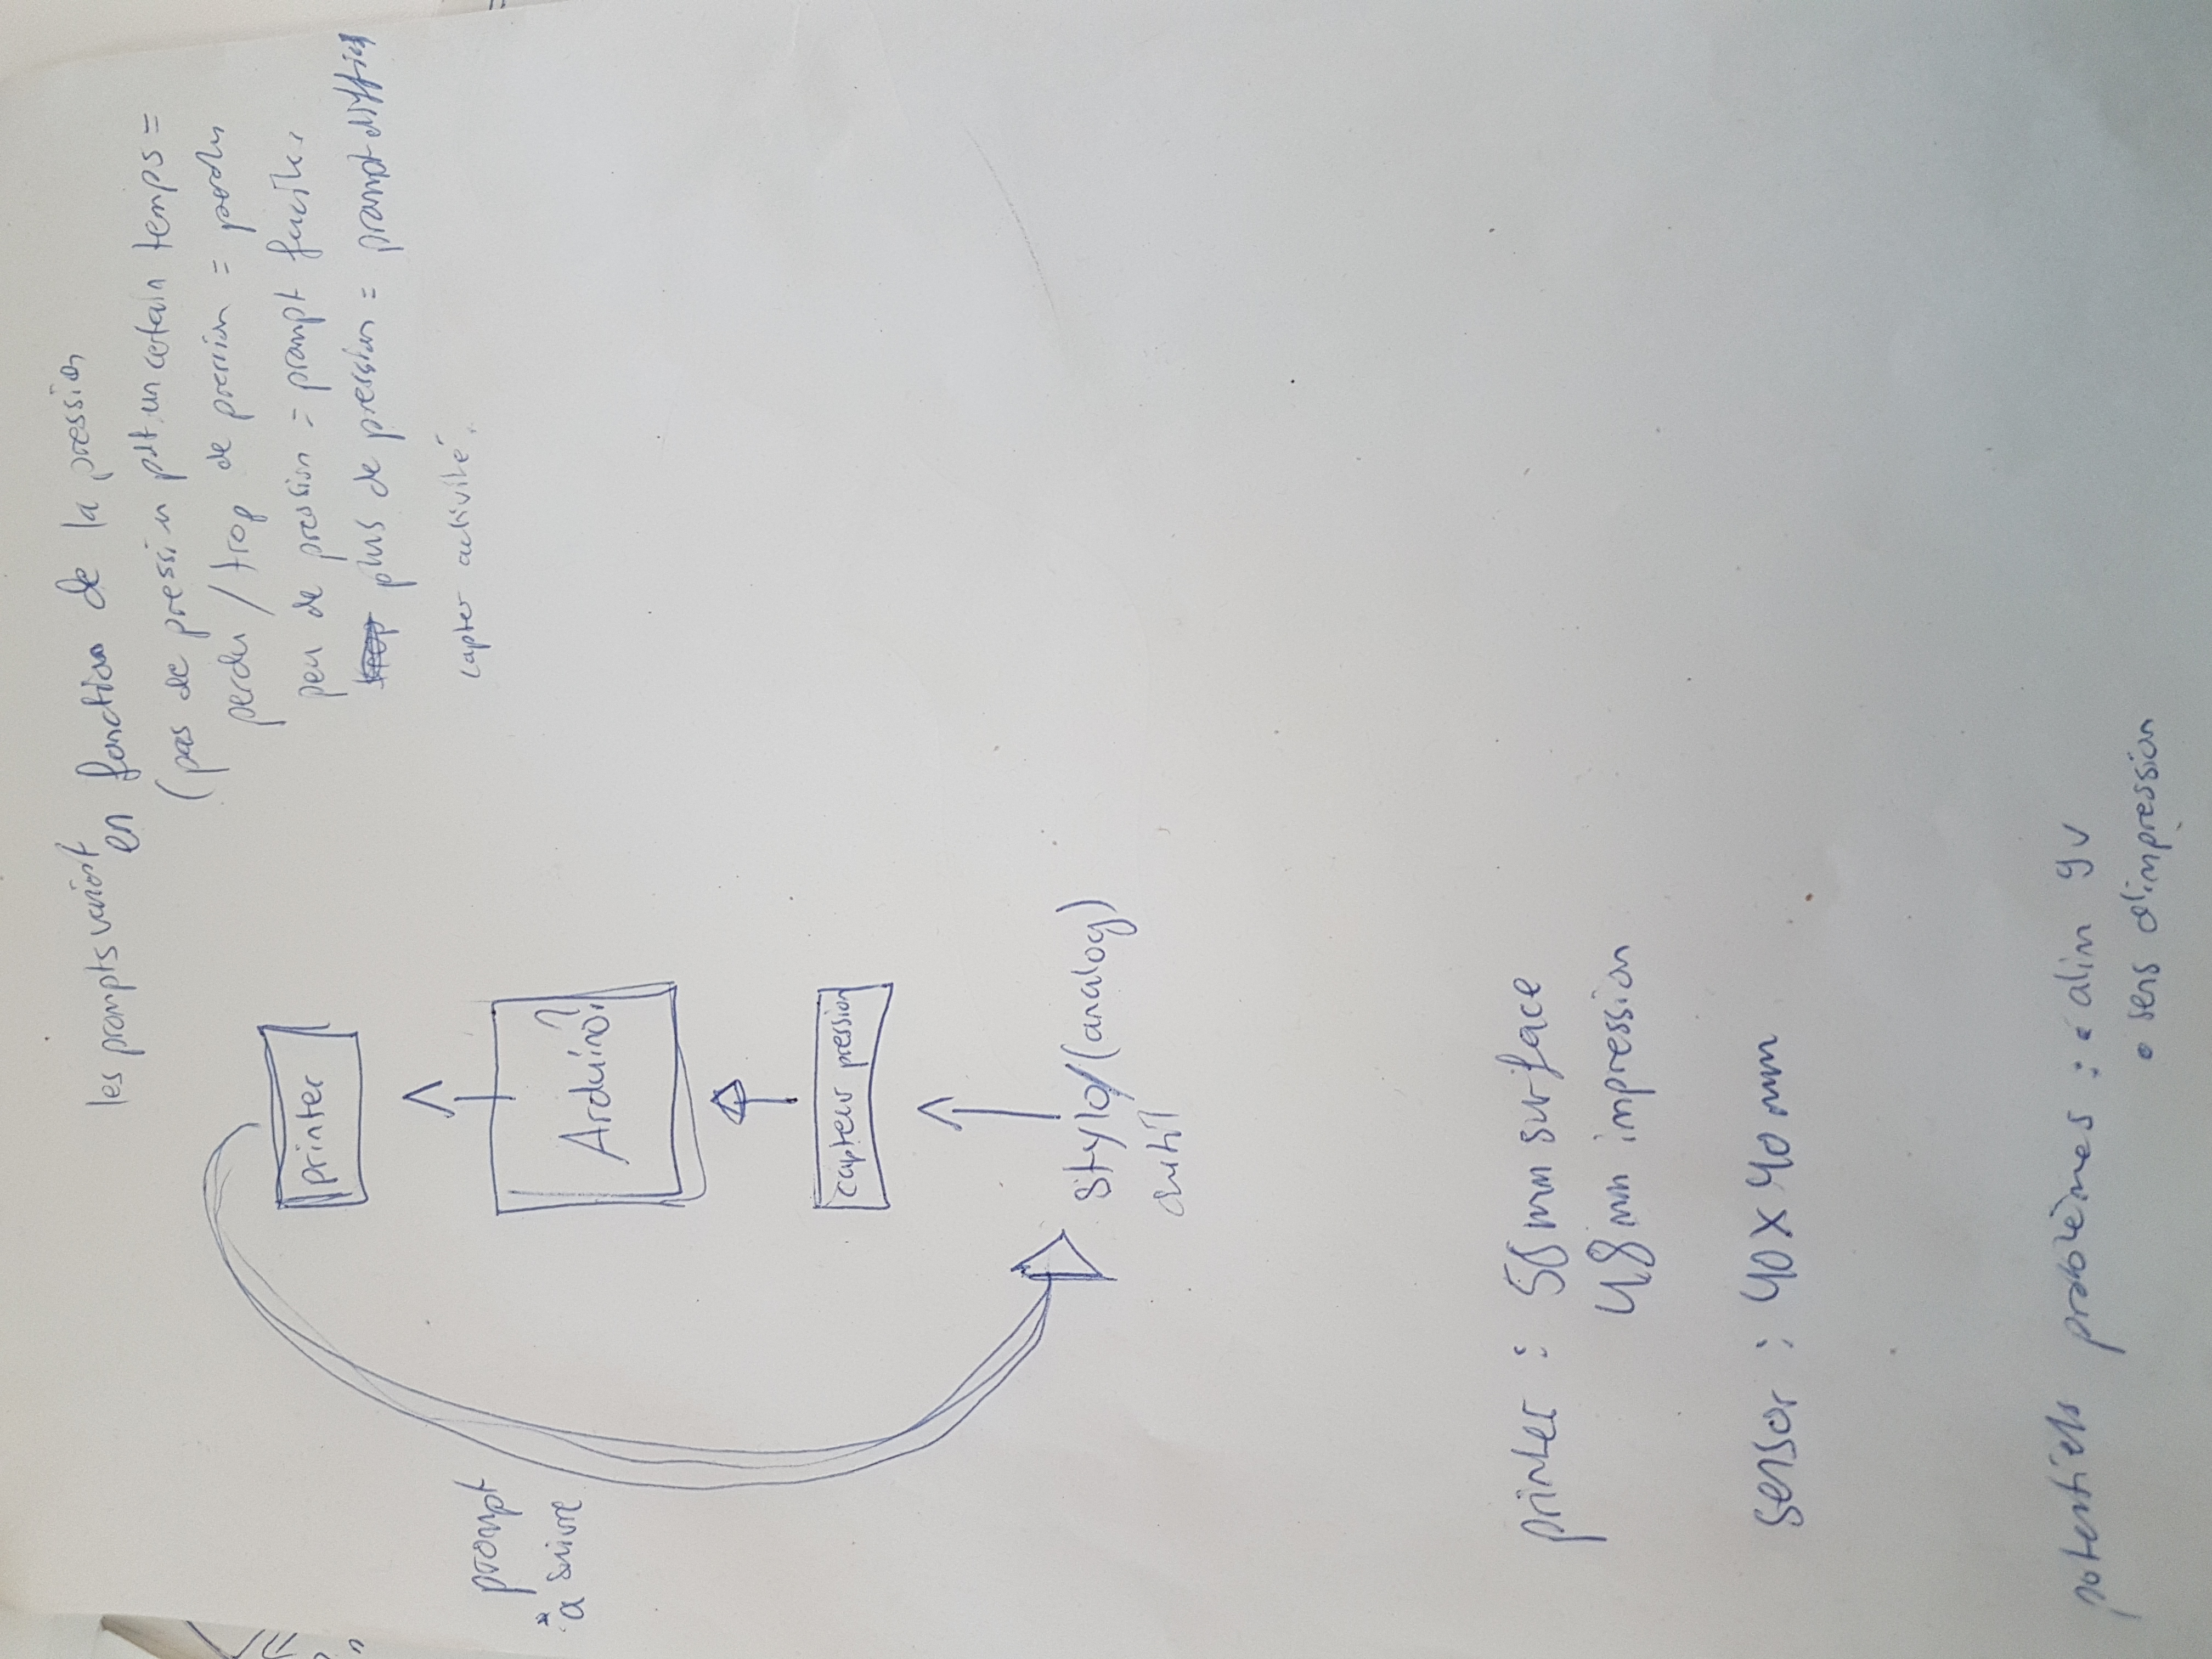 les prompts varient en fonction de la pression
(pas de pression pdt un certain temps =
perdu / trop de pression = perdu
peu de pression = prompt faciles
plus de pression = prompt difficil
capter activité.
printer
prompt
à suivre
Arduino?
capteur pression
stylo/(analog)
outil
printer : 58mm surface
48mm impression
sensor : 40x40mm
potentiels problèmes : • alim 9v
• sens d'impression